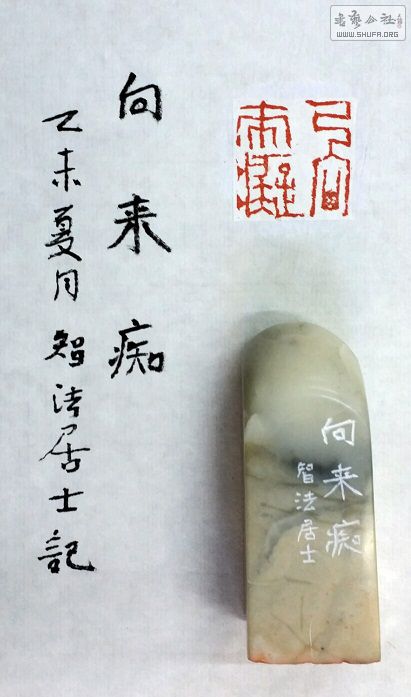 書藝公社
WWW.SHUFA.ORG
向来痴
乙未夏月智法居士記
向来痴
智法居士